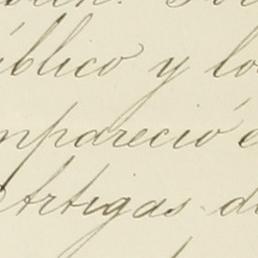 úblico y lo
mpareció e
Artigas de